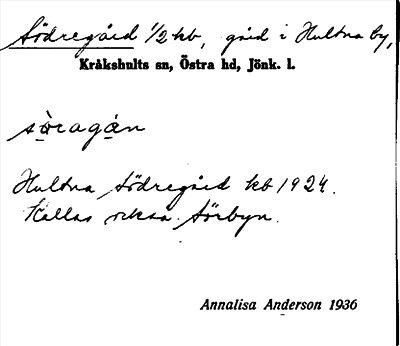 Södregård 1/2 kb, gård i Hultna by,
Kråkshults sn, Östra hd, Jönk. l.
sòragán
Hultna Södregård kb 1924.
Kallas också Sörbyn.
Annalisa Anderson 1936